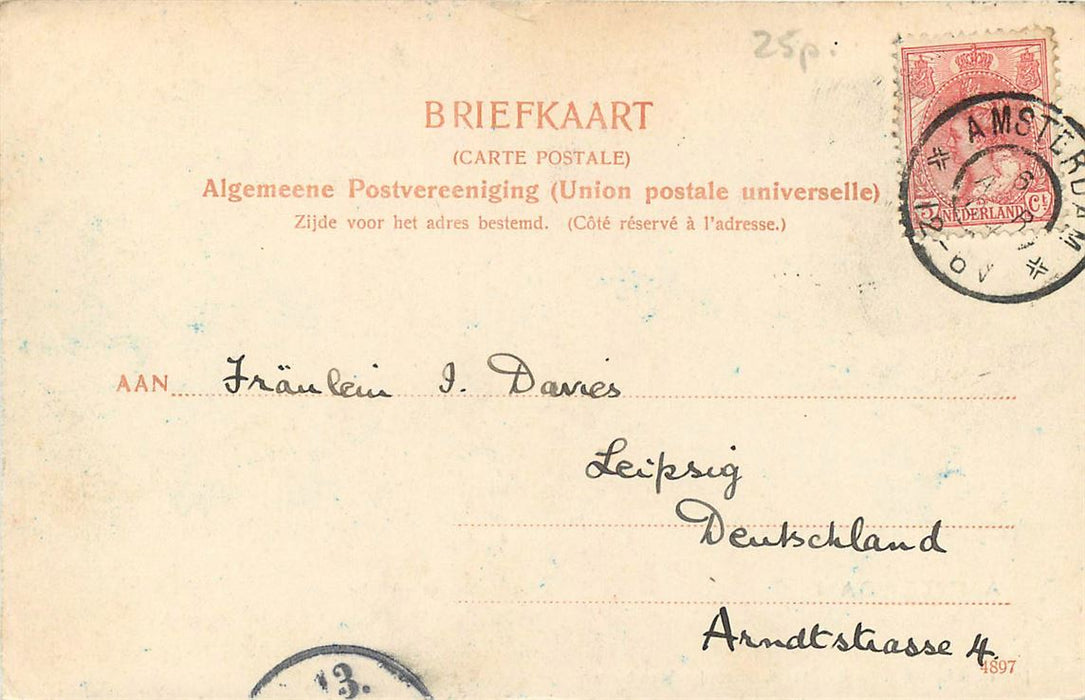 25p.
BRIEFKAART
(CARTE POSTALE)
Algemeene Postvereeniging (Union postale universelle)
Zijde voor het adres bestemd. (Côté réservé à l'adresse.)
AMSTERDAM
5 NEDERLAND Ct
AAN Fräulein I. Davies
Leipsig
Deutschland
Arndtstrasse 4.
4897
13.